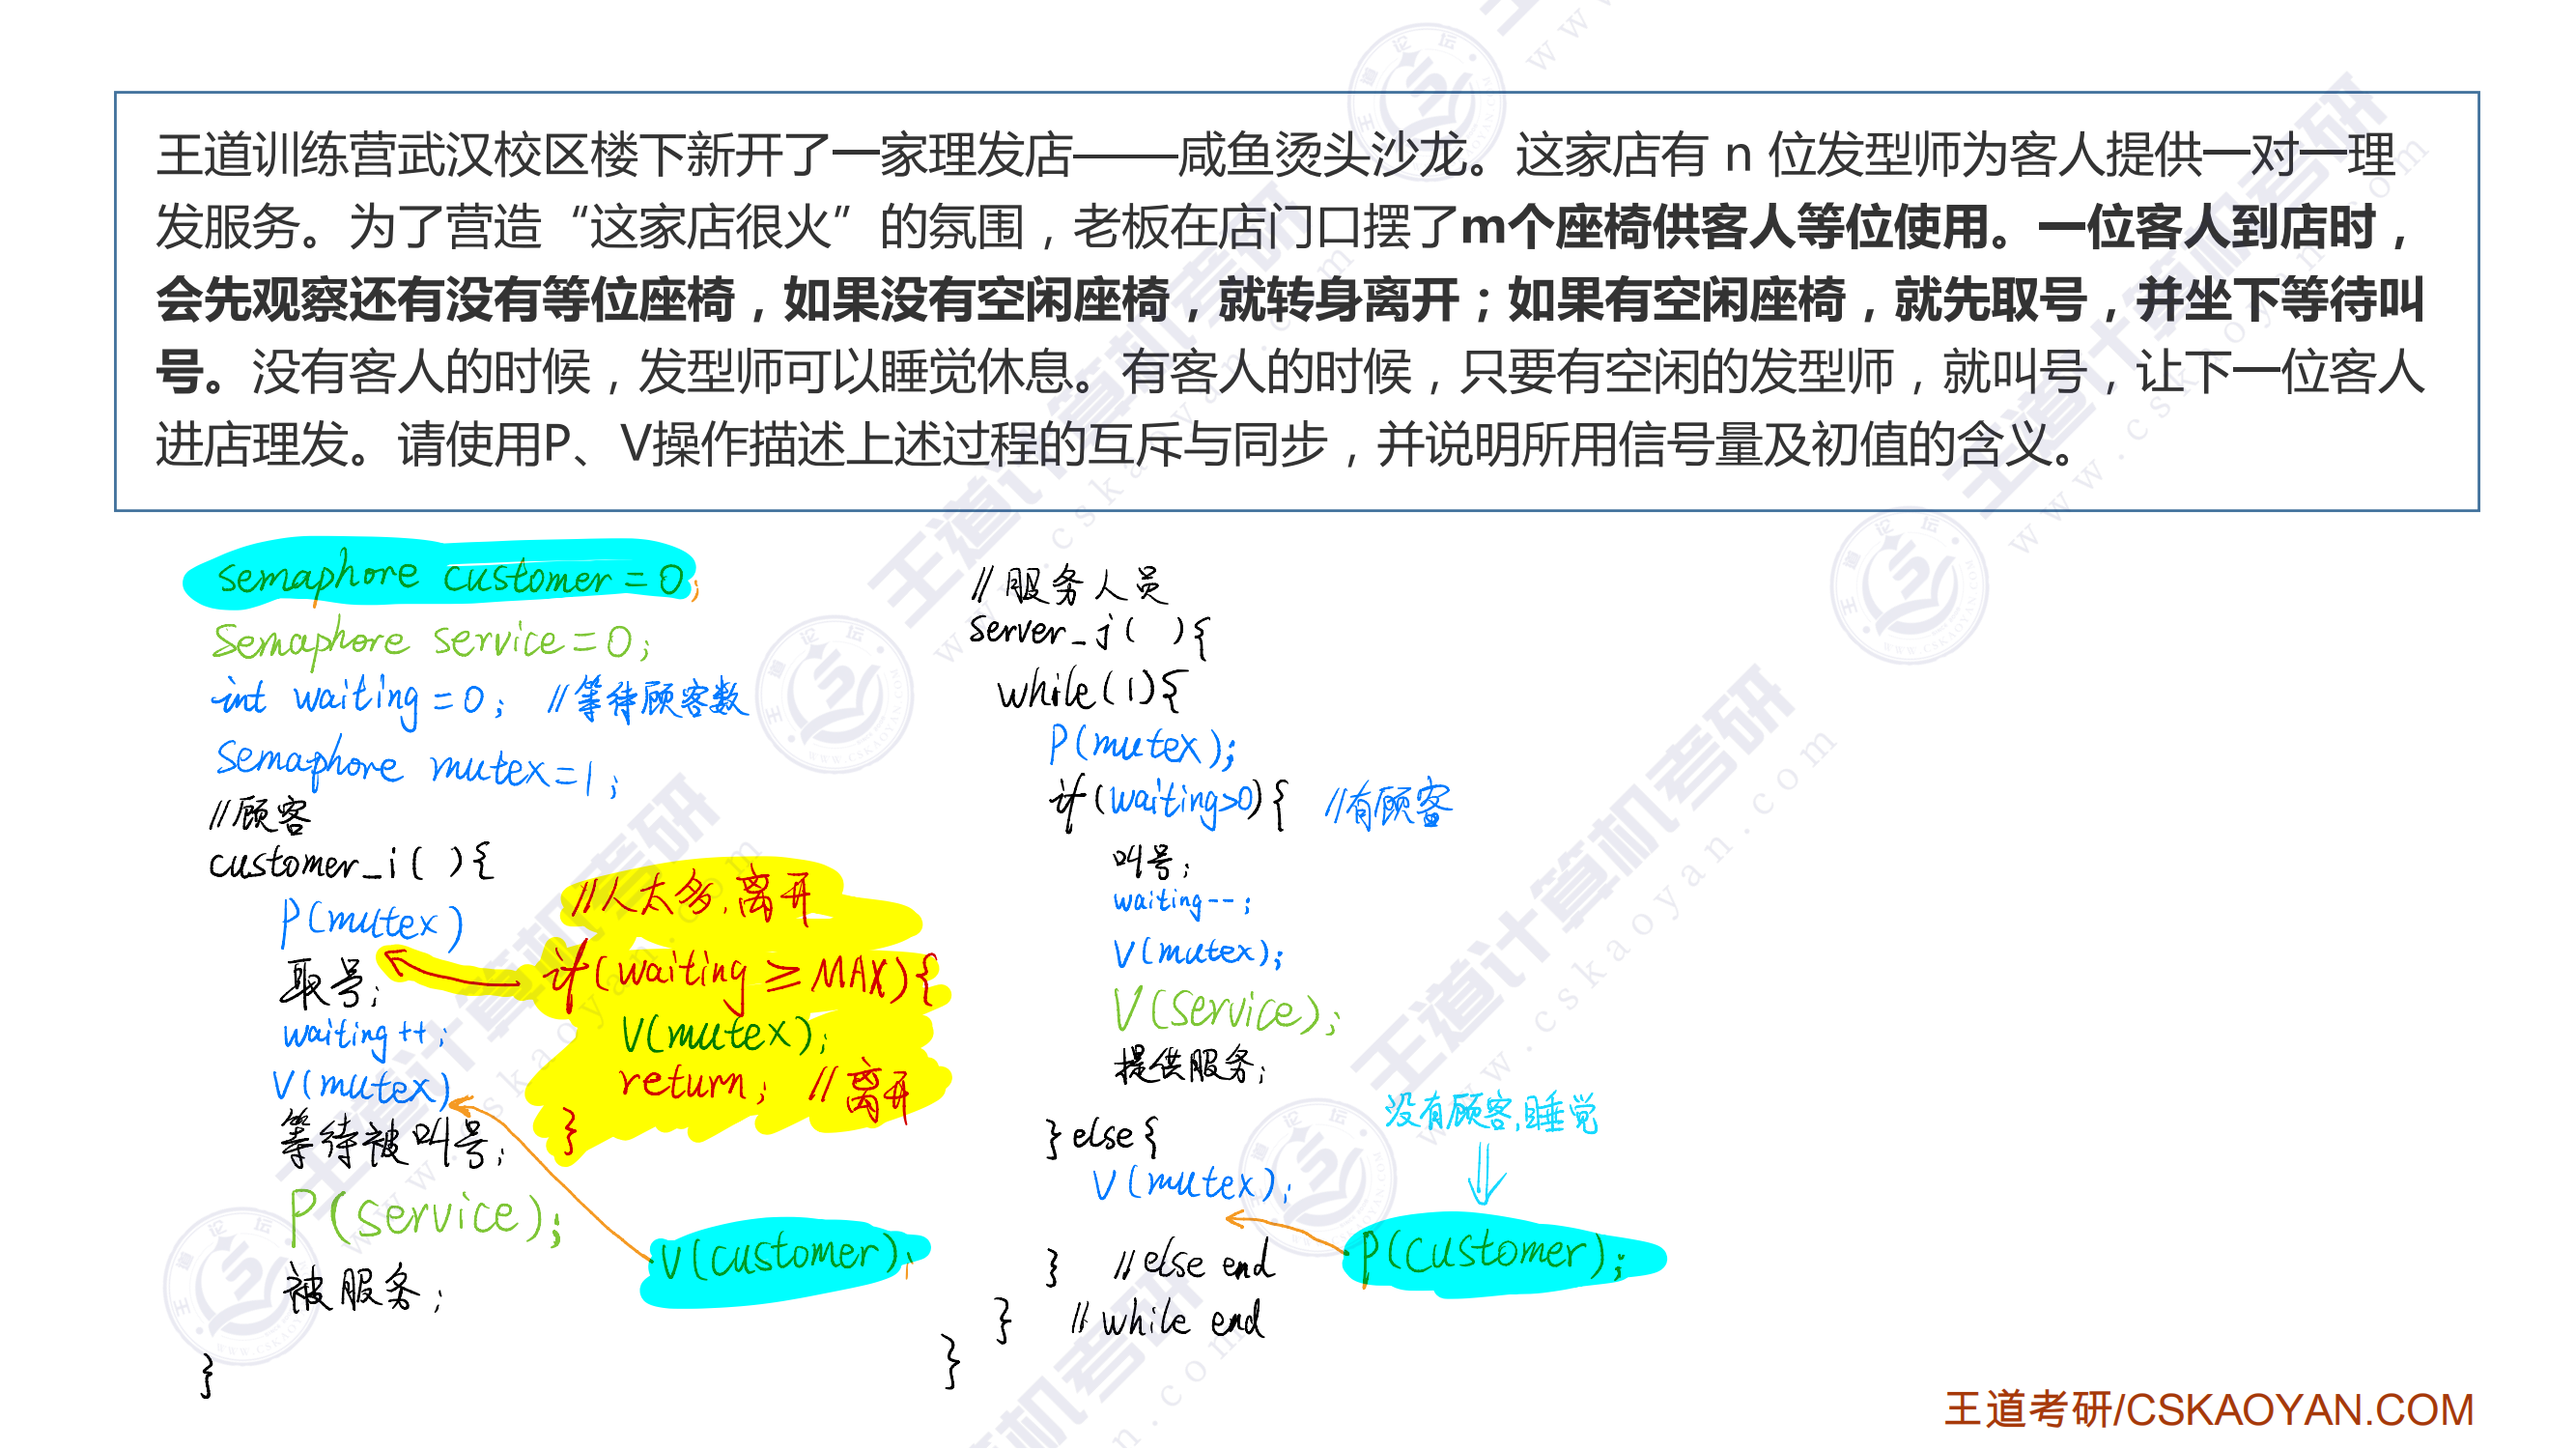 王道训练营武汉校区楼下新开了一家理发店——咸鱼烫头沙龙。这家店有 n 位发型师为客人提供一对一理
发服务。为了营造“这家店很火”的氛围，老板在店门口摆了m个座椅供客人等位使用。一位客人到店时，
会先观察还有没有等位座椅，如果没有空闲座椅，就转身离开；如果有空闲座椅，就先取号，并坐下等待叫
号。没有客人的时候，发型师可以睡觉休息。有客人的时候，只要有空闲的发型师，就叫号，让下一位客人
进店理发。请使用P、V操作描述上述过程的互斥与同步，并说明所用信号量及初值的含义。
semaphore customer=0;
Semaphore service=0;
int waiting=0; //等待顾客数
Semaphore mutex=1;
//顾客
customer_i( ){
P(mutex)
取号;
waiting++;
V(mutex)
等待被叫号;
P(service);
被服务;
}
//人太多,离开
if(waiting≥MAX){
V(mutex);
return; //离开
}
V(customer);
//服务人员
server_j( ){
while(1){
P(mutex);
if(waiting>0){ //有顾客
叫号;
waiting--;
V(mutex);
V(service);
提供服务;
}else{
V(mutex);
} //else end
} //while end
}
没有顾客,睡觉
P(customer);
王道考研/CSKAOYAN.COM
王道计算机考研
www.cskaoyan.com